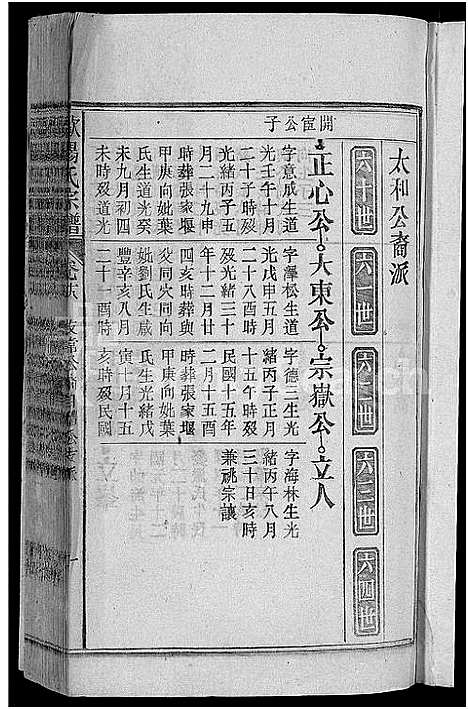 太和公裔派
六十世
六一世
六二世
六三世
六四世
開宦公子
正心公。大東公。宗嶽公。立人
字意成生道
光壬午十月
二十子時歿
光緒丙子五
月二十九申
時葬張家堰
甲庚向妣葉
氏生道光癸
未九月初四
未時歿道光
字澤松生道
光戊申五月
二十八酉時
歿光緒三十
年十二月廿
四亥時葬與
父同穴同向
妣劉氏生咸
豐辛亥八月
二十一酉時
字德二生光
緒丙子正月
十五午時歿
民國十五年
二月十五酉
時葬張家堰
甲庚向妣葉
氏生光緒戊
寅十月十五
亥時歿民國
字海林生光
緒丙午八月
三十日亥時
兼祧宗讓
陽氏宗譜